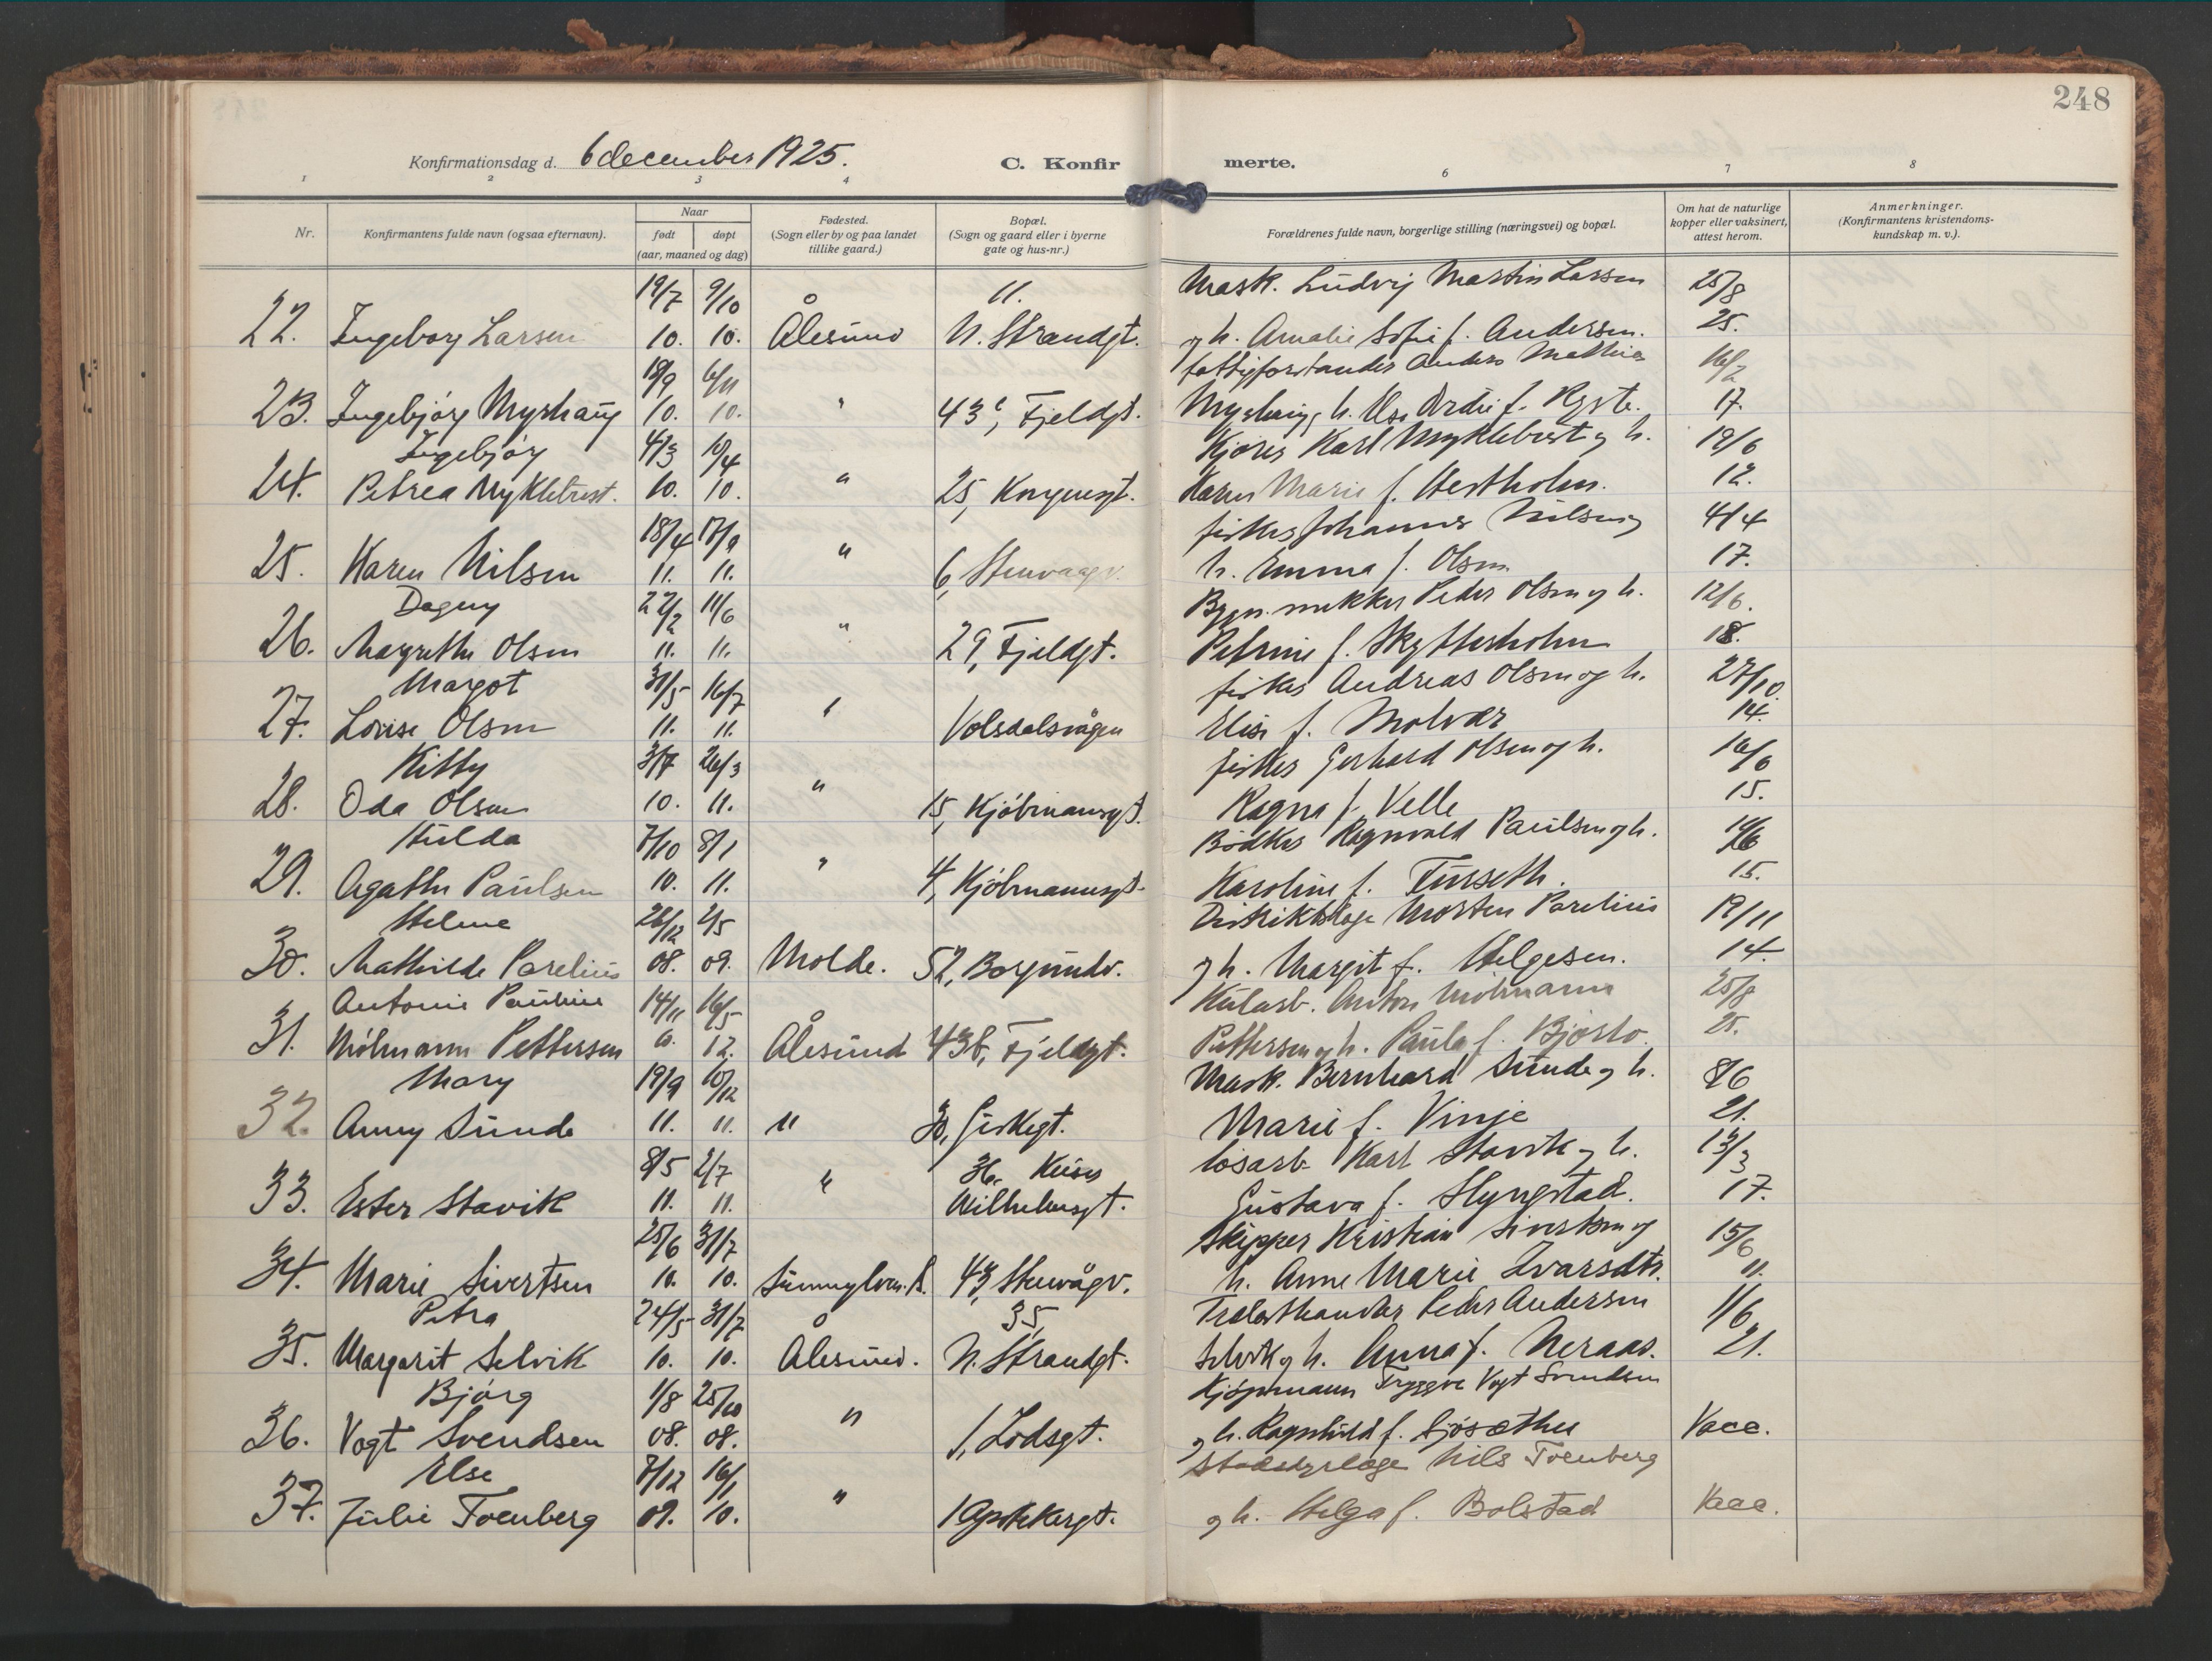 248
Konfirmationsdag d. 6 december 1925.
C. Konfirmerte.
1 2 3 4 6 7 8
Nr.
Konfirmantens fulde navn (ogsaa efternavn).
Naar
født døpt
(aar, maaned og dag)
Fødested.
(Sogn eller by og paa landet
tillike gaard.)
Bopæl.
(Sogn og gaard eller i byerne
gate og hus-nr.)
Forældrenes fulde navn, borgerlige stilling (næringsvei) og bopæl.
Om hat de naturlige
kopper eller vaksinert,
attest herom.
Anmerkninger.
(Konfirmantens kristendoms-
kundskap m. v.).
19/7 9/10 11. Mask. Ludvig Martin Larsen 25/8
22. Ingeborg Larsen 10. 10. Ålesund N. Strandgt. og h. Amalie Sofie f. Andersen. 25.
18/9 6/11 fattigforstander Anders Mathias 16/2
23. Ingebjørg Myrhaug 10. 10. " 43c, Fjeldgt. Myrhaug, h. f. Ryste. 17.
Ingebjørg 4/3 10/4 Kjører Karl Myklebust og h. 19/6
24. Petrea Myklebust. 10. 10. " 25, Kongensgt. Karen Marie f. Hestholm. 12.
18/4 17/9 fisker Johannes Nilsen og 4/4
25. Karen Nilsen 11. 11. " 6, Stenvaagv. h. Emma f. Olsen 17.
Dagny 22/2 11/6 Bygn.snekker Peder Olsen og h. 12/6.
26. Margrethe Olsen 11. 11. " 29, Fjeldgt. Petrine f. Skytterholm 18.
Margot 31/5 16/7 fisker Andreas Olsen og h. 27/10.
27. Lovise Olsen 11. 11. " Volsdalsvågen Elise f. Molvær 14.
Kitty 3/7 26/3 fisker Gerhard Olsen og h. 16/6
28. Oda Olsen 10. 11. " 15, Kjøbmannsgt. Ragna f. Velle 15.
Hulda 7/10 8/1 Bødker Ragnvald Paulsen og h.
29. Agathe Paulsen 10. 11. " 4, Kjøbmannsgt. Karoline f. Furseth. 15.
Helene 26/12 2/5 Distriktslæge Morten Parelius 19/11
30. Mathilde Parelius 08. 09. Molde. 52, Borgundv. og h. Margit f. Helgesen. 14.
Antonie Pauline 14/11 16/5 Kularb. Anton Mølmann 25/8
31. Mølmann Pettersen 12. Ålesund 43b, Fjeldgt. Pettersen og h. Paula f. Bjørlo. 25.
Mary 19/9 10/12 Mask. Bernhard Sunde og h. 8/6
32. Anny Sunde 11. 11. " 30, Kirkegt. Marie f. Vinje 21.
8/5 2/7 36, Keiser løsarb. Karl Stavik og h. 13/3
33. Ester Stavik 11. 11. " Wilhelmsgt. Gustava f. Slyngstad. 17.
25/6 31/7 Skipper Kristian Sivertsen og 15/6
34. Marie Sivertsen 10. 10. Sunnylven. S. 43, Stenvågv. h. Anne Marie Ivarsdtr. 11.
Petra 24/5 31/7 35, Trælasthandler Peder Andersen 1/6
35. Margarit Selvik 10. 10. Ålesund. N. Strandgt. Selvik og h. Anna f. Neraas. 21.
Bjørg 1/8 25/10 Kjøpmann Tryggve Vogt Svendsen
36. Vogt Svendsen 08. 08. " 1, Lodsgt. og h. Ragnhild f. Sjøsæther Vacc.
Else 7/12 16/1 Nils Toenberg
37. Julie Toenberg 09. 10. " 1 Apotekergt. og h. Helga f. Bolstad Vacc.